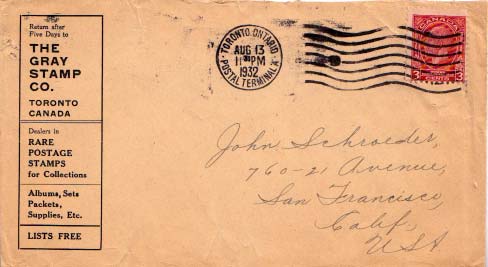 Return after
Five Days to
THE
GRAY
STAMP
CO.
TORONTO
CANADA
Dealers in
RARE
POSTAGE
STAMPS
for Collections
Albums, Sets
Packets,
Supplies, Etc.
LISTS FREE
TORONTO, ONTARIO
AUG 13
11 PM
1932
POSTAL TERMINAL A
CANADA
3 CENTS 3
John Schroeder,
760-21 Avenue,
San Francisco,
Calif,
USA